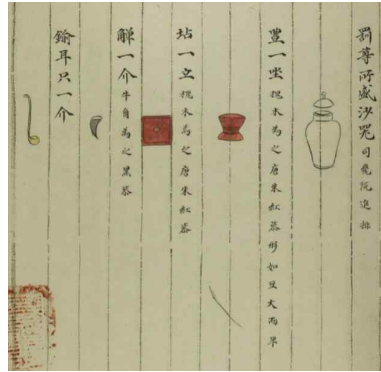 罰尊所盛沙瓮 司瓮院進排
豊一坐 椵木爲之唐朱紅漆形如豆大而卑
坫一立 椵木爲之唐朱紅漆
觶一介 牛角爲之黑漆
鍮耳只一介